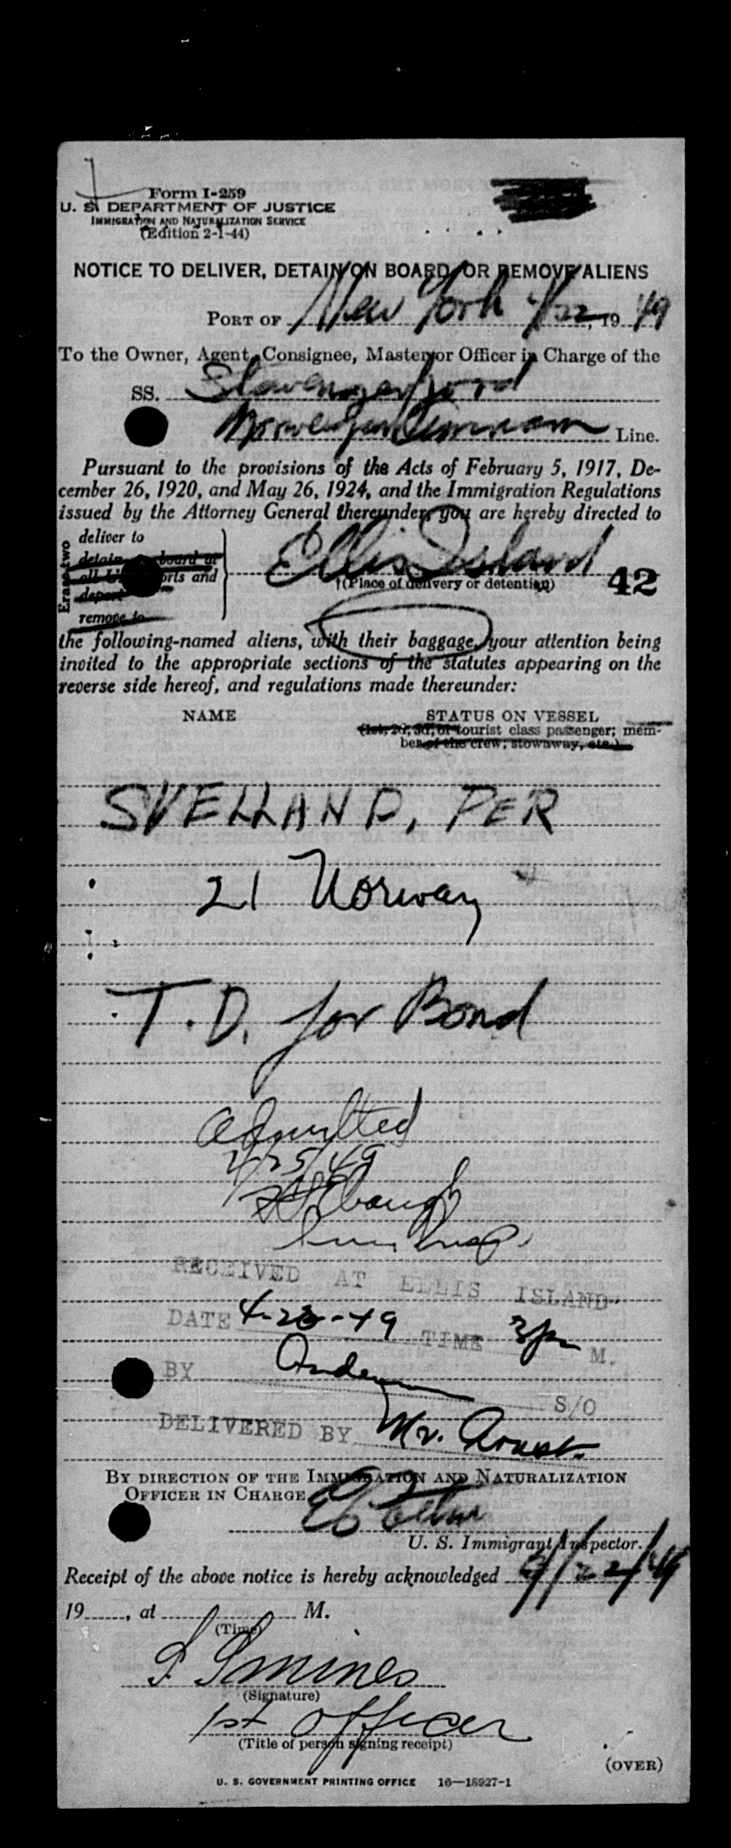 Form I-259
U. S. DEPARTMENT OF JUSTICE
IMMIGRATION AND NATURALIZATION SERVICE
(Edition 2-1-44)
NOTICE TO DELIVER, DETAIN ON BOARD, OR REMOVE ALIENS
PORT OF New York 4/22, 1949
To the Owner, Agent, Consignee, Master, or Officer in Charge of the
SS. Stavangerfjord
Norwegian American Line.
Pursuant to the provisions of the Acts of February 5, 1917, De-
cember 26, 1920, and May 26, 1924, and the Immigration Regulations
issued by the Attorney General thereunder, you are hereby directed to
Erase two
deliver to
detain on board at
all U. S. ports and
deport
remove to
Ellis Island
†(Place of delivery or detention)
42
the following-named aliens, with their baggage, your attention being
invited to the appropriate sections of the statutes appearing on the
reverse side hereof, and regulations made thereunder:
NAME
STATUS ON VESSEL
(1st, 2d, 3d, or tourist class passenger; mem-
ber of the crew, stowaway, etc.)
SVELLAND, PER
21 Norway
T.D. for Bond
Admitted
4/25/49
RECEIVED AT ELLIS ISLAND
DATE 4-23-49 TIME 3p M.
BY
S/O
DELIVERED BY Mr.
BY DIRECTION OF THE IMMIGRATION AND NATURALIZATION
OFFICER IN CHARGE
U. S. Immigrant Inspector.
Receipt of the above notice is hereby acknowledged 4/22/49
19......, at .................... M.
(Time)
(Signature)
1st Officer
(Title of person signing receipt)
(OVER)
U. S. GOVERNMENT PRINTING OFFICE 16—18927-1